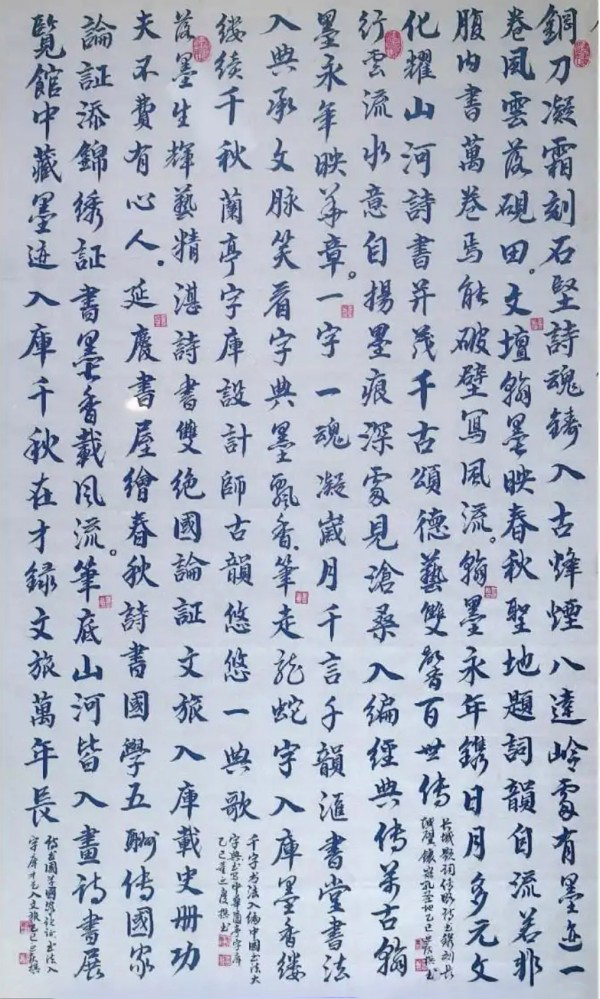 鋼刀凝霜刻石堅詩魂鑄入古烽煙八達岭處有墨迹一
卷風雲落硯田。文壇翰墨映春秋聖地題詞韻自流若非
腹内書萬卷焉能破壁寫風流。翰墨永年鐫日月多元文
化耀山河詩書并茂千古頌德藝雙馨百世傳
行雲流水意自揚墨痕深處見滄桑入編經典傳萬古翰
墨永年映華章。一字一魂凝崴月千言千韻滙書堂書法
入典承文脉笑看字典墨飄香筆走龍蛇字入庫墨香缕
缕续千秋蘭亭字庫設計師古韻悠悠一典歌
千字书法入编中國书法大
落墨生輝藝精湛詩書雙绝國論証文旅入庫載史册功
夫不費有心人。延慶書屋繪春秋詩書國學五酬傳國家
論証添錦綉証書墨香載风流。筆底山河皆入畫詩書展
覽館中藏墨迹入庫千秋在才録文旅萬年長